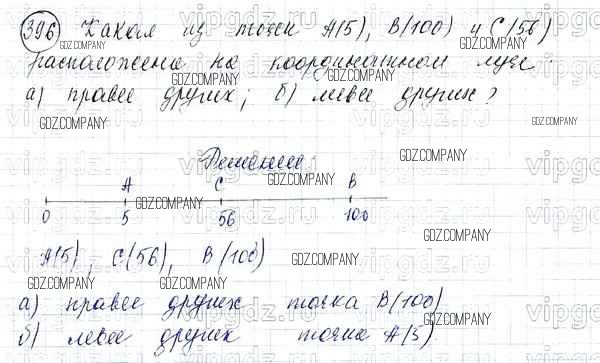 396 Какая из точек А(5), В(100) и С(56)
расположена на координатном луче
а) правее других; б) левее других?
Решение:
А С В
0 5 56 100
А(5), С(56), В(100)
а) правее других точка В(100)
б) левее других точка А(5)
GDZ.COMPANY
vipgdz.ru